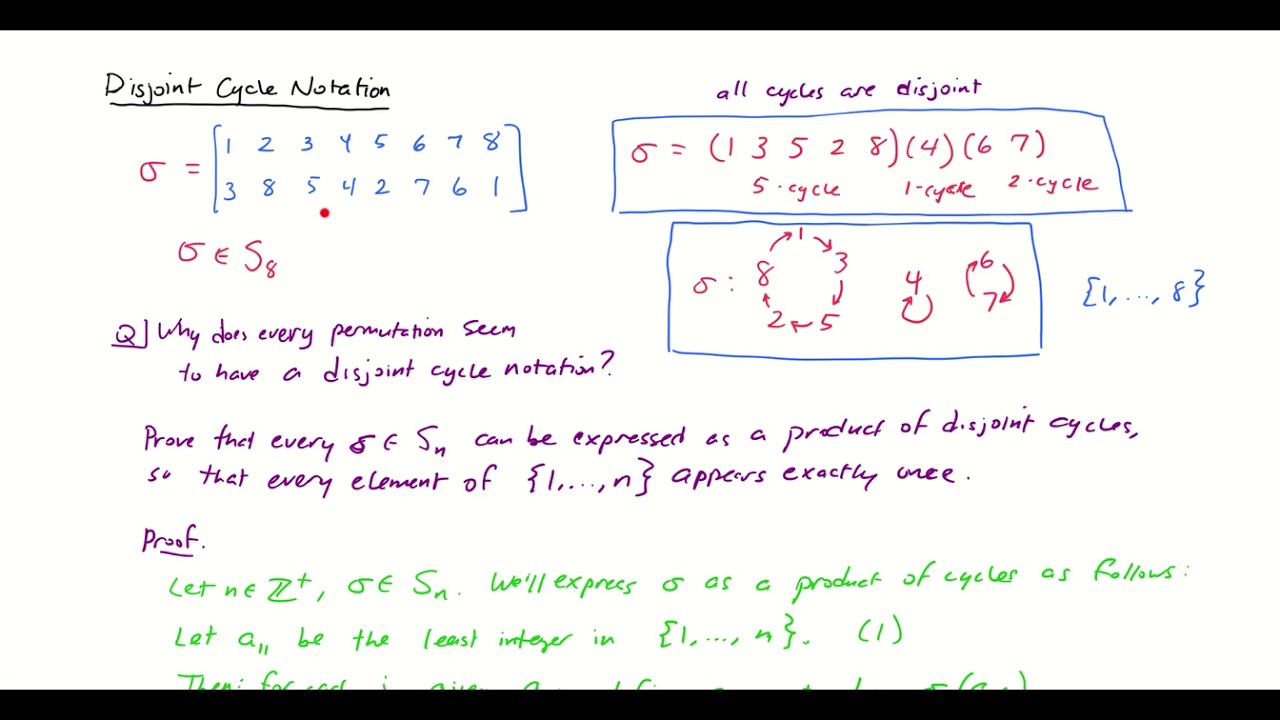 Disjoint Cycle Notation
all cycles are disjoint
σ = [1 2 3 4 5 6 7 8
3 8 5 4 2 7 6 1]
σ ∈ S₈
σ = (1 3 5 2 8)(4)(6 7)
5-cycle 1-cycle 2-cycle
σ: 1 3 5 2 8 4 6 7
{1,...,8}
Q] Why does every permutation seem
to have a disjoint cycle notation?
Prove that every σ ∈ Sₙ can be expressed as a product of disjoint cycles,
so that every element of {1,...,n} appears exactly once.
Proof.
Let n ∈ ℤ⁺, σ ∈ Sₙ. We'll express σ as a product of cycles as follows:
Let a₁₁ be the least integer in {1,...,n}. (1)
Then: for each